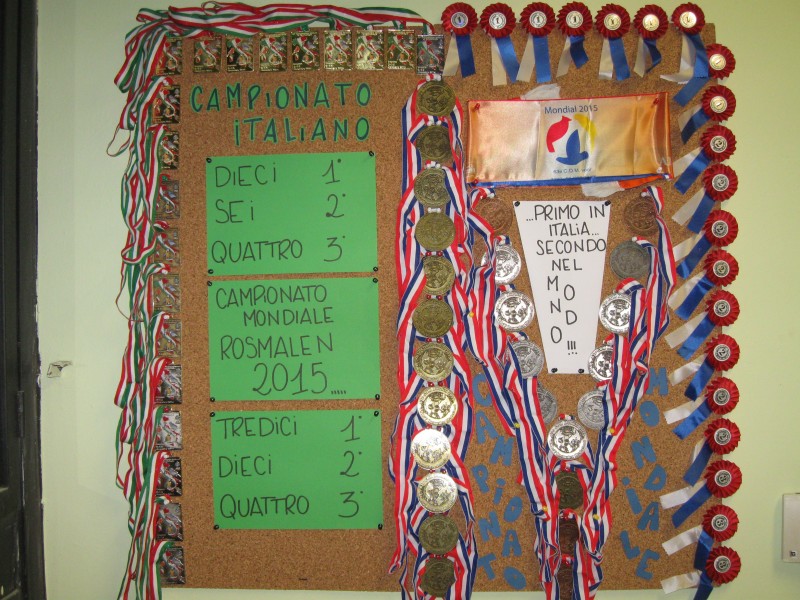 CAMPIONATO
ITALIANO
DIECI 1°
SEI 2°
QUATTRO 3°
CAMPIONATO
MONDIALE
ROSMALEN
2015.....
TREDICI 1°
DIECI 2°
QUATTRO 3°
Mondial 2015
...PRIMO IN
ITALIA...
SECONDO
NEL
MONDO
!!!
CAMPIONATO
MONDIALE